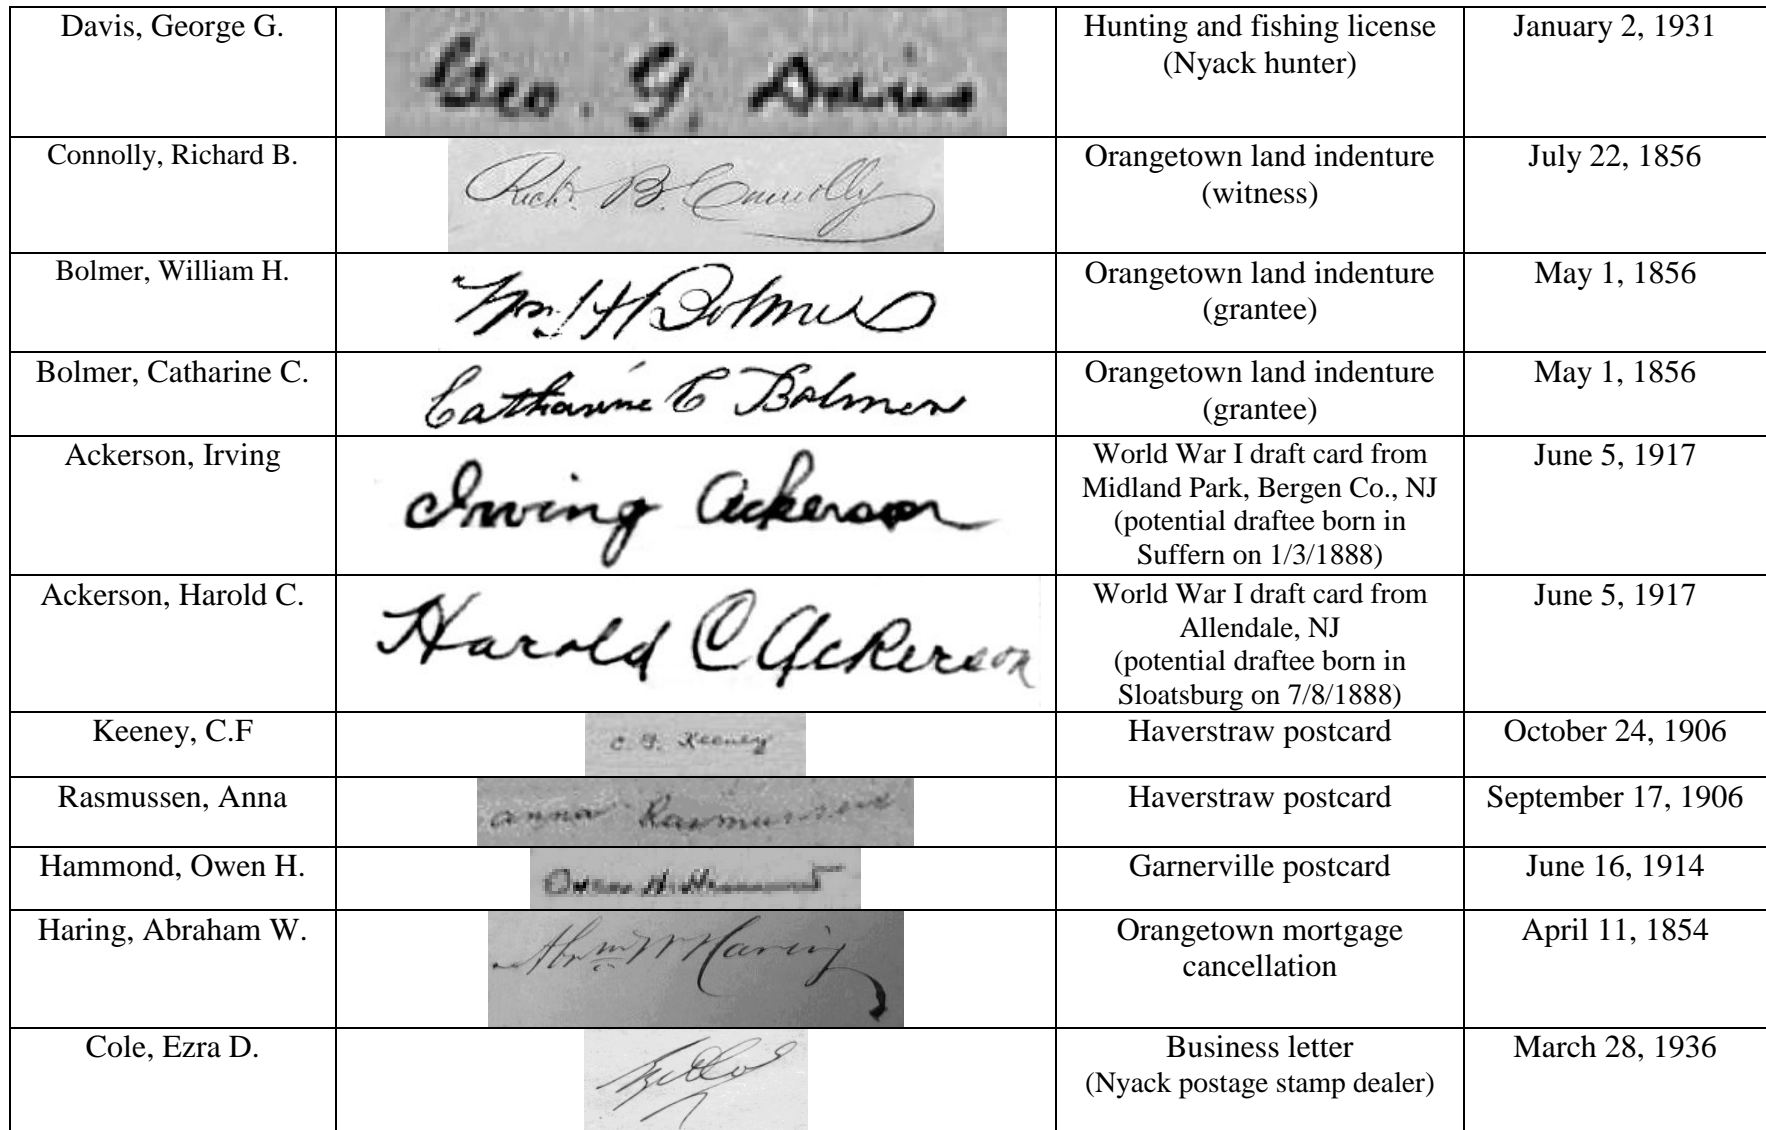 Davis, George G.
Geo. G. Davis
Hunting and fishing license
(Nyack hunter)
January 2, 1931
Connolly, Richard B.
Richd. B. Connolly
Orangetown land indenture
(witness)
July 22, 1856
Bolmer, William H.
Wm. H Bolmer
Orangetown land indenture
(grantee)
May 1, 1856
Bolmer, Catharine C.
Catharine C Bolmer
Orangetown land indenture
(grantee)
May 1, 1856
Ackerson, Irving
Irving Ackerson
World War I draft card from
Midland Park, Bergen Co., NJ
(potential draftee born in
Suffern on 1/3/1888)
June 5, 1917
Ackerson, Harold C.
Harold C Ackerson
World War I draft card from
Allendale, NJ
(potential draftee born in
Sloatsburg on 7/8/1888)
June 5, 1917
Keeney, C.F
C. F. Keeney
Haverstraw postcard
October 24, 1906
Rasmussen, Anna
Anna Rasmussen
Haverstraw postcard
September 17, 1906
Hammond, Owen H.
Owen H. Hammond
Garnerville postcard
June 16, 1914
Haring, Abraham W.
Abrm W Haring
Orangetown mortgage
cancellation
April 11, 1854
Cole, Ezra D.
Business letter
(Nyack postage stamp dealer)
March 28, 1936